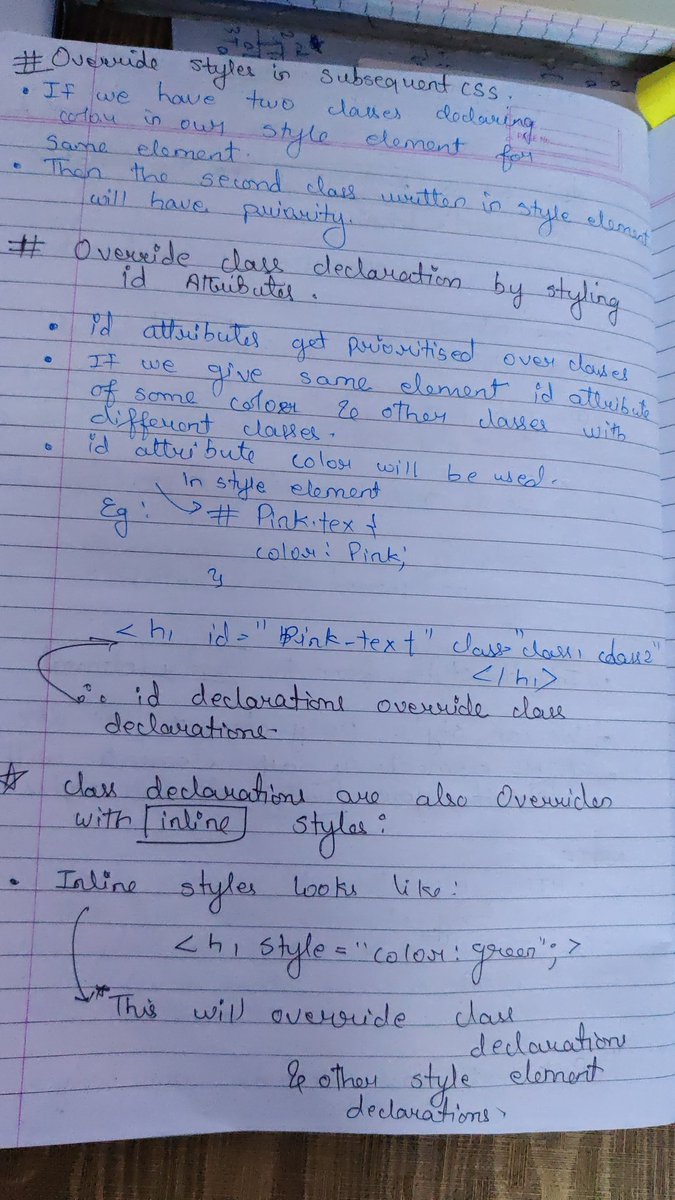 # Override styles in subsequent CSS.
• If we have two classes declaring
colou in our style element for
same element.
• Then the second class written in style element
will have priarity.
# Override class declaration by styling
id Attributes.
• id attributes get prioritised over classes
• If we give same element id attribute
of some color & other classes with
different classes.
• id attribute color will be used.
In style element
Eg: # Pink.text {
color: Pink;
}
<h1 id="Pink-text" class="class1 class2"
</h1>
∴ id declarations override class
declarations.
☆ class declarations are also Overriden
with inline styles:
• Inline styles looks like:
<h1 style="color: green";>
*This will override class
declarations
& other style element
declarations.